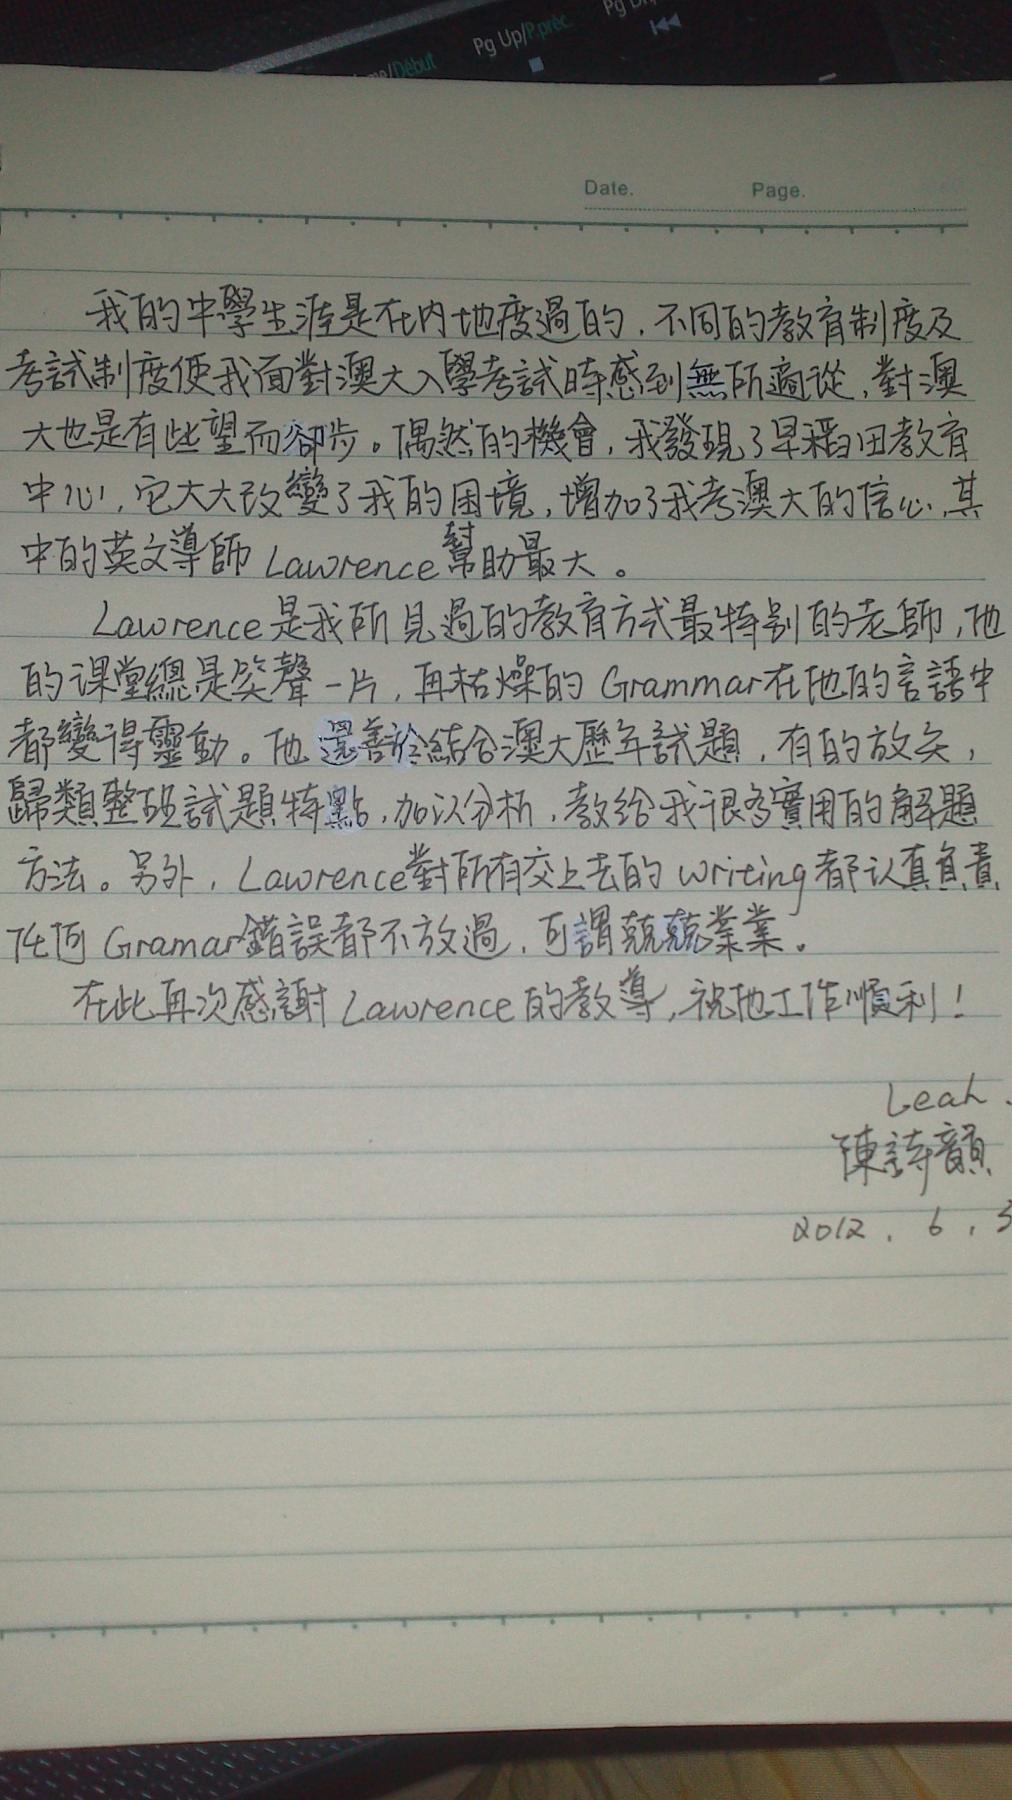 Pg Up/P.préc.
Pg D
me/Début
Date. Page.
我的中學生涯是在內地度過的，不同的教育制度及
考試制度使我面對澳大入學考試時感到無所適從，對澳
大也是有些望而卻步。偶然的機會，我發現了早稻田教育
中心，它大大改變了我的困境，增加了我考澳大的信心，其
中的英文導師 Lawrence 幫助最大。
Lawrence是我所見過的教育方式最特别的老師，他
的课堂總是笑聲一片，再枯燥的 Grammar在他的言語中
都變得靈動。他還善於結合澳大歷年試題，有的放矢，
歸類整理試題特點，加以分析，教給我很多實用的解題
方法。另外，Lawrence對所有交上去的 writing 都认真負責
任何 Gramar錯誤都不放過，可謂兢兢業業。
在此再次感謝 Lawrence 的教導，祝他工作順利！
Leah.
陳詩韻
2012. 6. 3